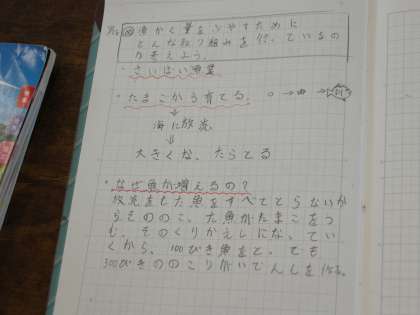 魚かく量をふやすために
どんな取り組みを行っているの
か考えよう。
・さいばい漁業
・たまごから育てる。
海に放流
大きくなったらとる
・なぜ魚が増えるの?
放流をした魚をすべてとらないか
らそののこった魚がたまごをう
む。そのくりかえしになってい
くから、100ぴき魚をとっても
300ぴきののこりがいでんしを